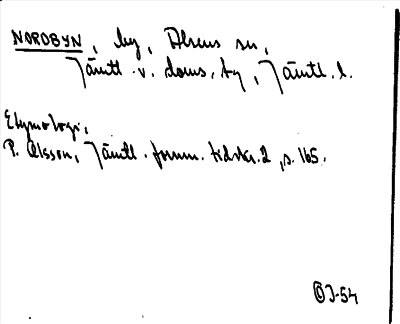 NORDBYN, by, Alsens sn,
Jämtl. v. doms. by, Jämtl. l.
Etymologi,
P. Olsson, Jämtl. fornm. tidskr. 2, s. 165.
OJ-54